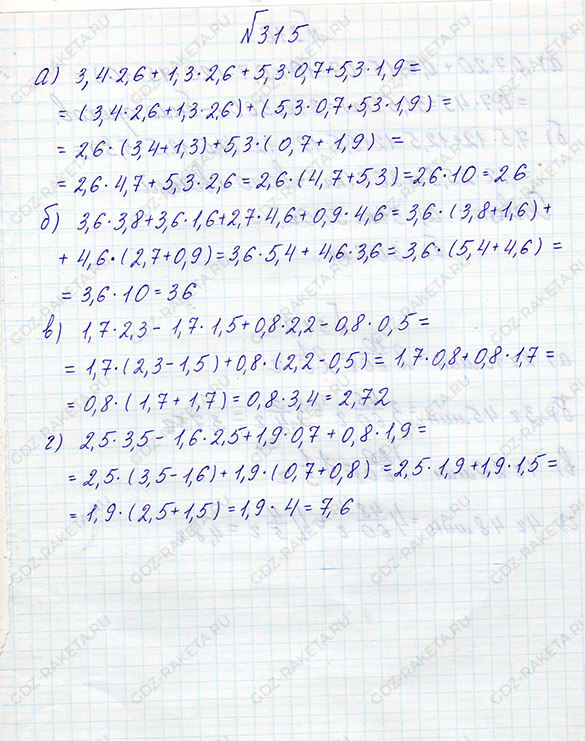 №315
а) 3,4·2,6+1,3·2,6+5,3·0,7+5,3·1,9=
=(3,4·2,6+1,3·2,6)+(5,3·0,7+5,3·1,9)=
=2,6·(3,4+1,3)+5,3·(0,7+1,9)=
=2,6·4,7+5,3·2,6=2,6·(4,7+5,3)=2,6·10=26
б) 3,6·3,8+3,6·1,6+2,7·4,6+0,9·4,6=3,6·(3,8+1,6)+
+4,6·(2,7+0,9)=3,6·5,4+4,6·3,6=3,6·(5,4+4,6)=
=3,6·10=36
в) 1,7·2,3-1,7·1,5+0,8·2,2-0,8·0,5=
=1,7·(2,3-1,5)+0,8·(2,2-0,5)=1,7·0,8+0,8·1,7=
=0,8·(1,7+1,7)=0,8·3,4=2,72
г) 2,5·3,5-1,6·2,5+1,9·0,7+0,8·1,9=
=2,5·(3,5-1,6)+1,9·(0,7+0,8)=2,5·1,9+1,9·1,5=
=1,9·(2,5+1,5)=1,9·4=7,6
GDZ-RAKETA.RU